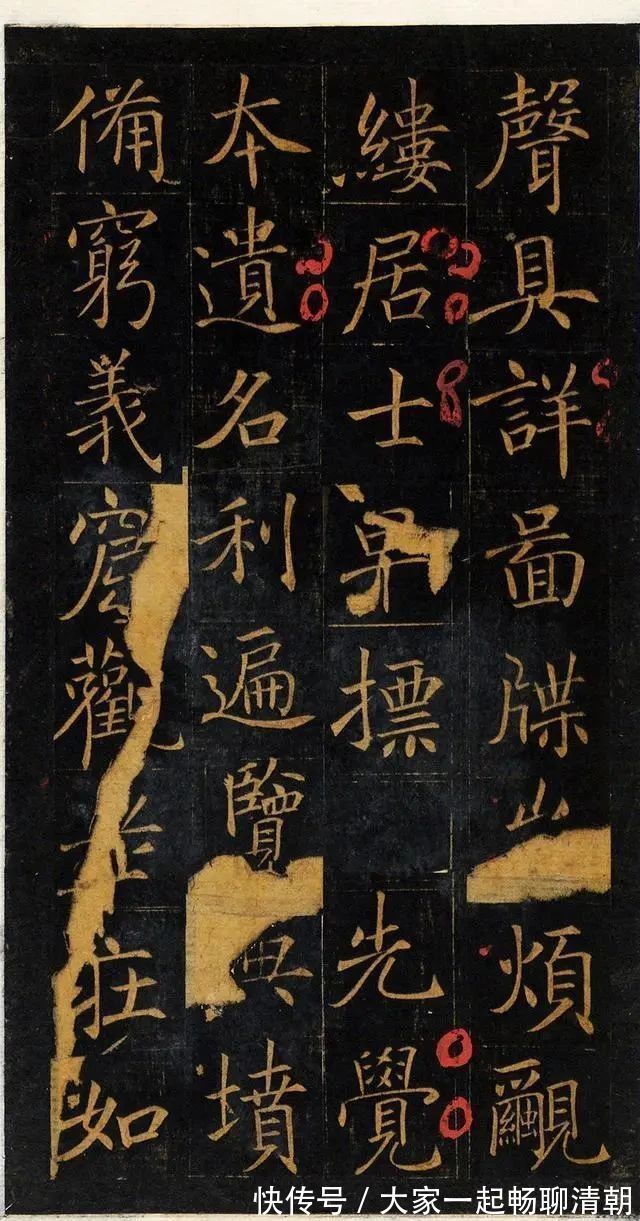 聲具詳啚牒煩覼
縷居士早標先覺
本遺名利遍覽典墳
備窮義窟觀莊如
快传号/大家一起畅聊清朝